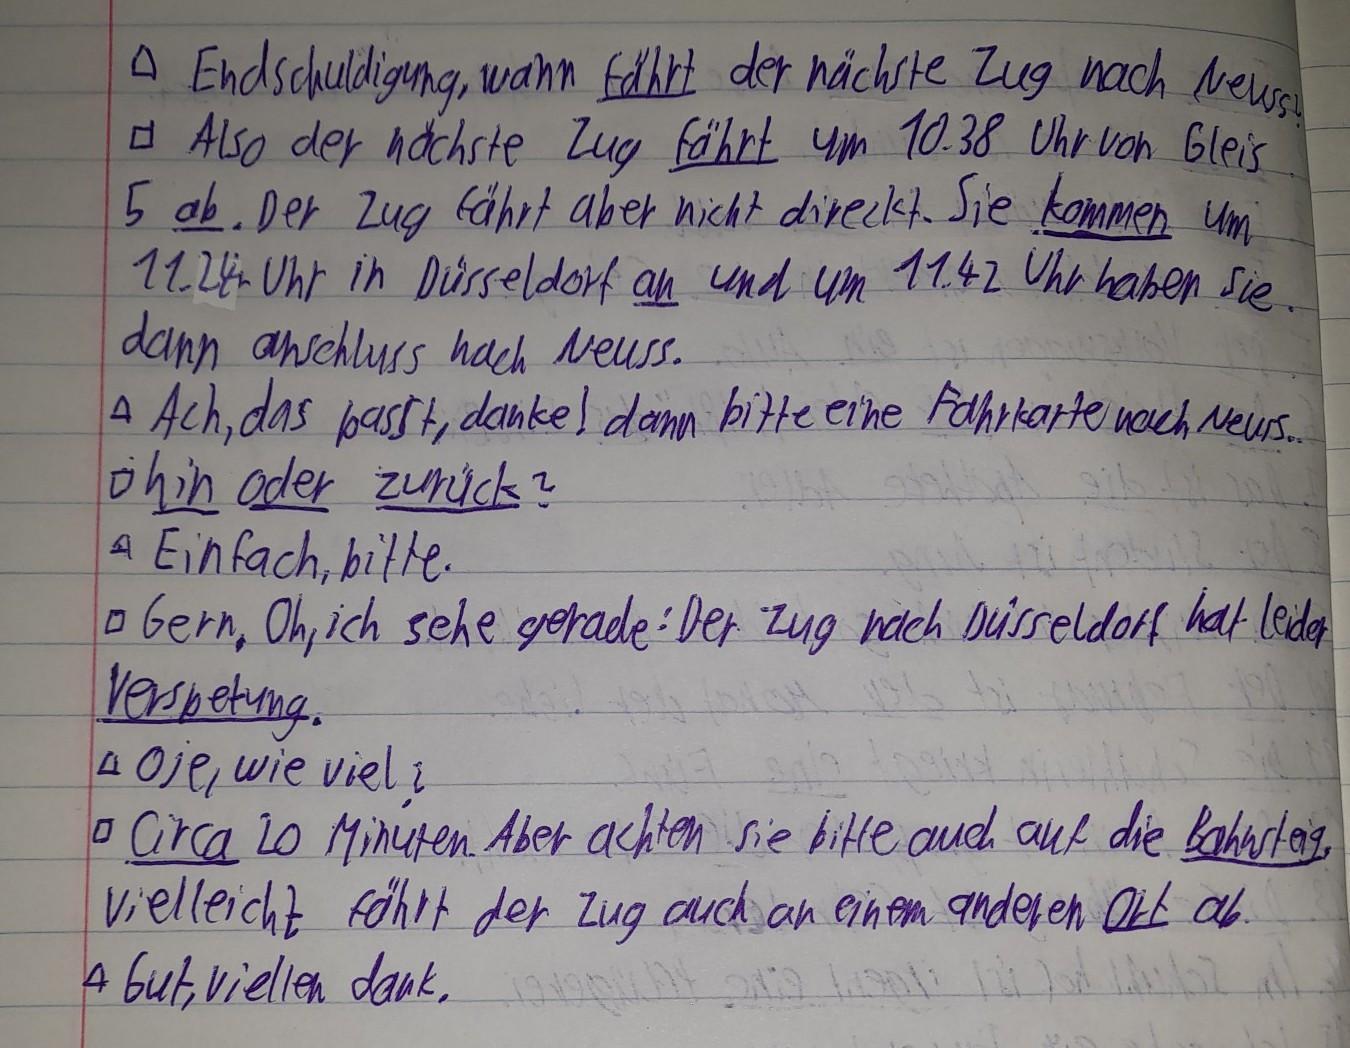 △ Endschuldigung, wann fährt der nächste Zug nach Neuss?
□ Also der nächste Zug fährt um 10.38 Uhr von Gleis
5 ab. Der Zug fährt aber nicht direckt. Sie kommen um
11.24 Uhr in Düsseldorf an und um 11.42 Uhr haben Sie.
dann anschluss nach Neuss.
△ Ach, das passt, danke! dann bitte eine Fahrkarte nach Neuss.
□ hin oder zurück?
△ Einfach, bitte.
□ Gern, Oh, ich sehe gerade: Der Zug nach Düsseldorf hat leider
Verspetung.
△ Oje, wie viel?
□ Circa 20 Minuten. Aber achten sie bitte auch auf die Bahnsteig,
vielleicht fährt der Zug auch an einem anderen Ort ab.
△ Gut, viellen dank.